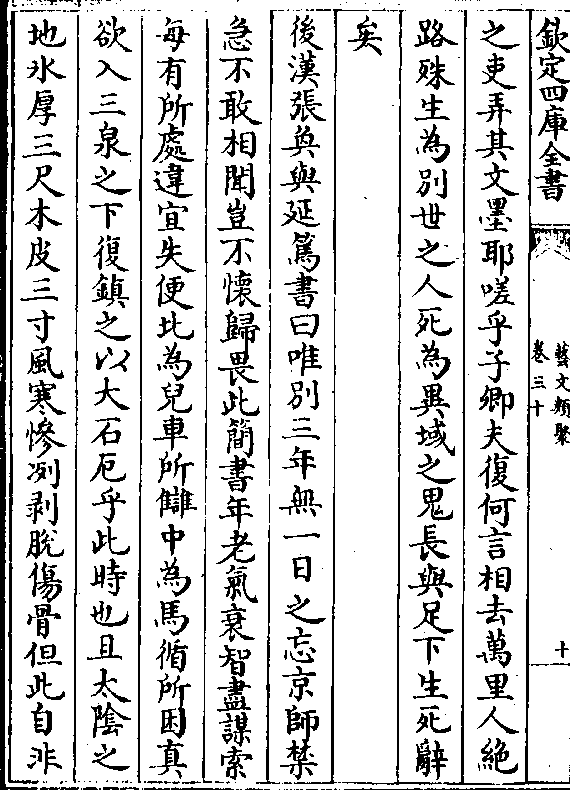 欽定四庫全書
藝文類聚
卷三十
十
之吏弄其文墨耶嗟乎子卿夫復何言相去萬里人絶
路殊生為別世之人死為異域之鬼長與足下生死辭
矣
後漢張奐與延篤書曰唯別三年無一日之忘京師禁
急不敢相聞豈不懷歸畏此簡書年老氣衰智盡謀索
每有所處違宜失便北為兒車所讎中為馬循所困真
欲入三泉之下復鎮之以大石厄乎此時也且太陰之
地氷厚三尺木皮三寸風寒慘冽剥脫傷骨但此自非